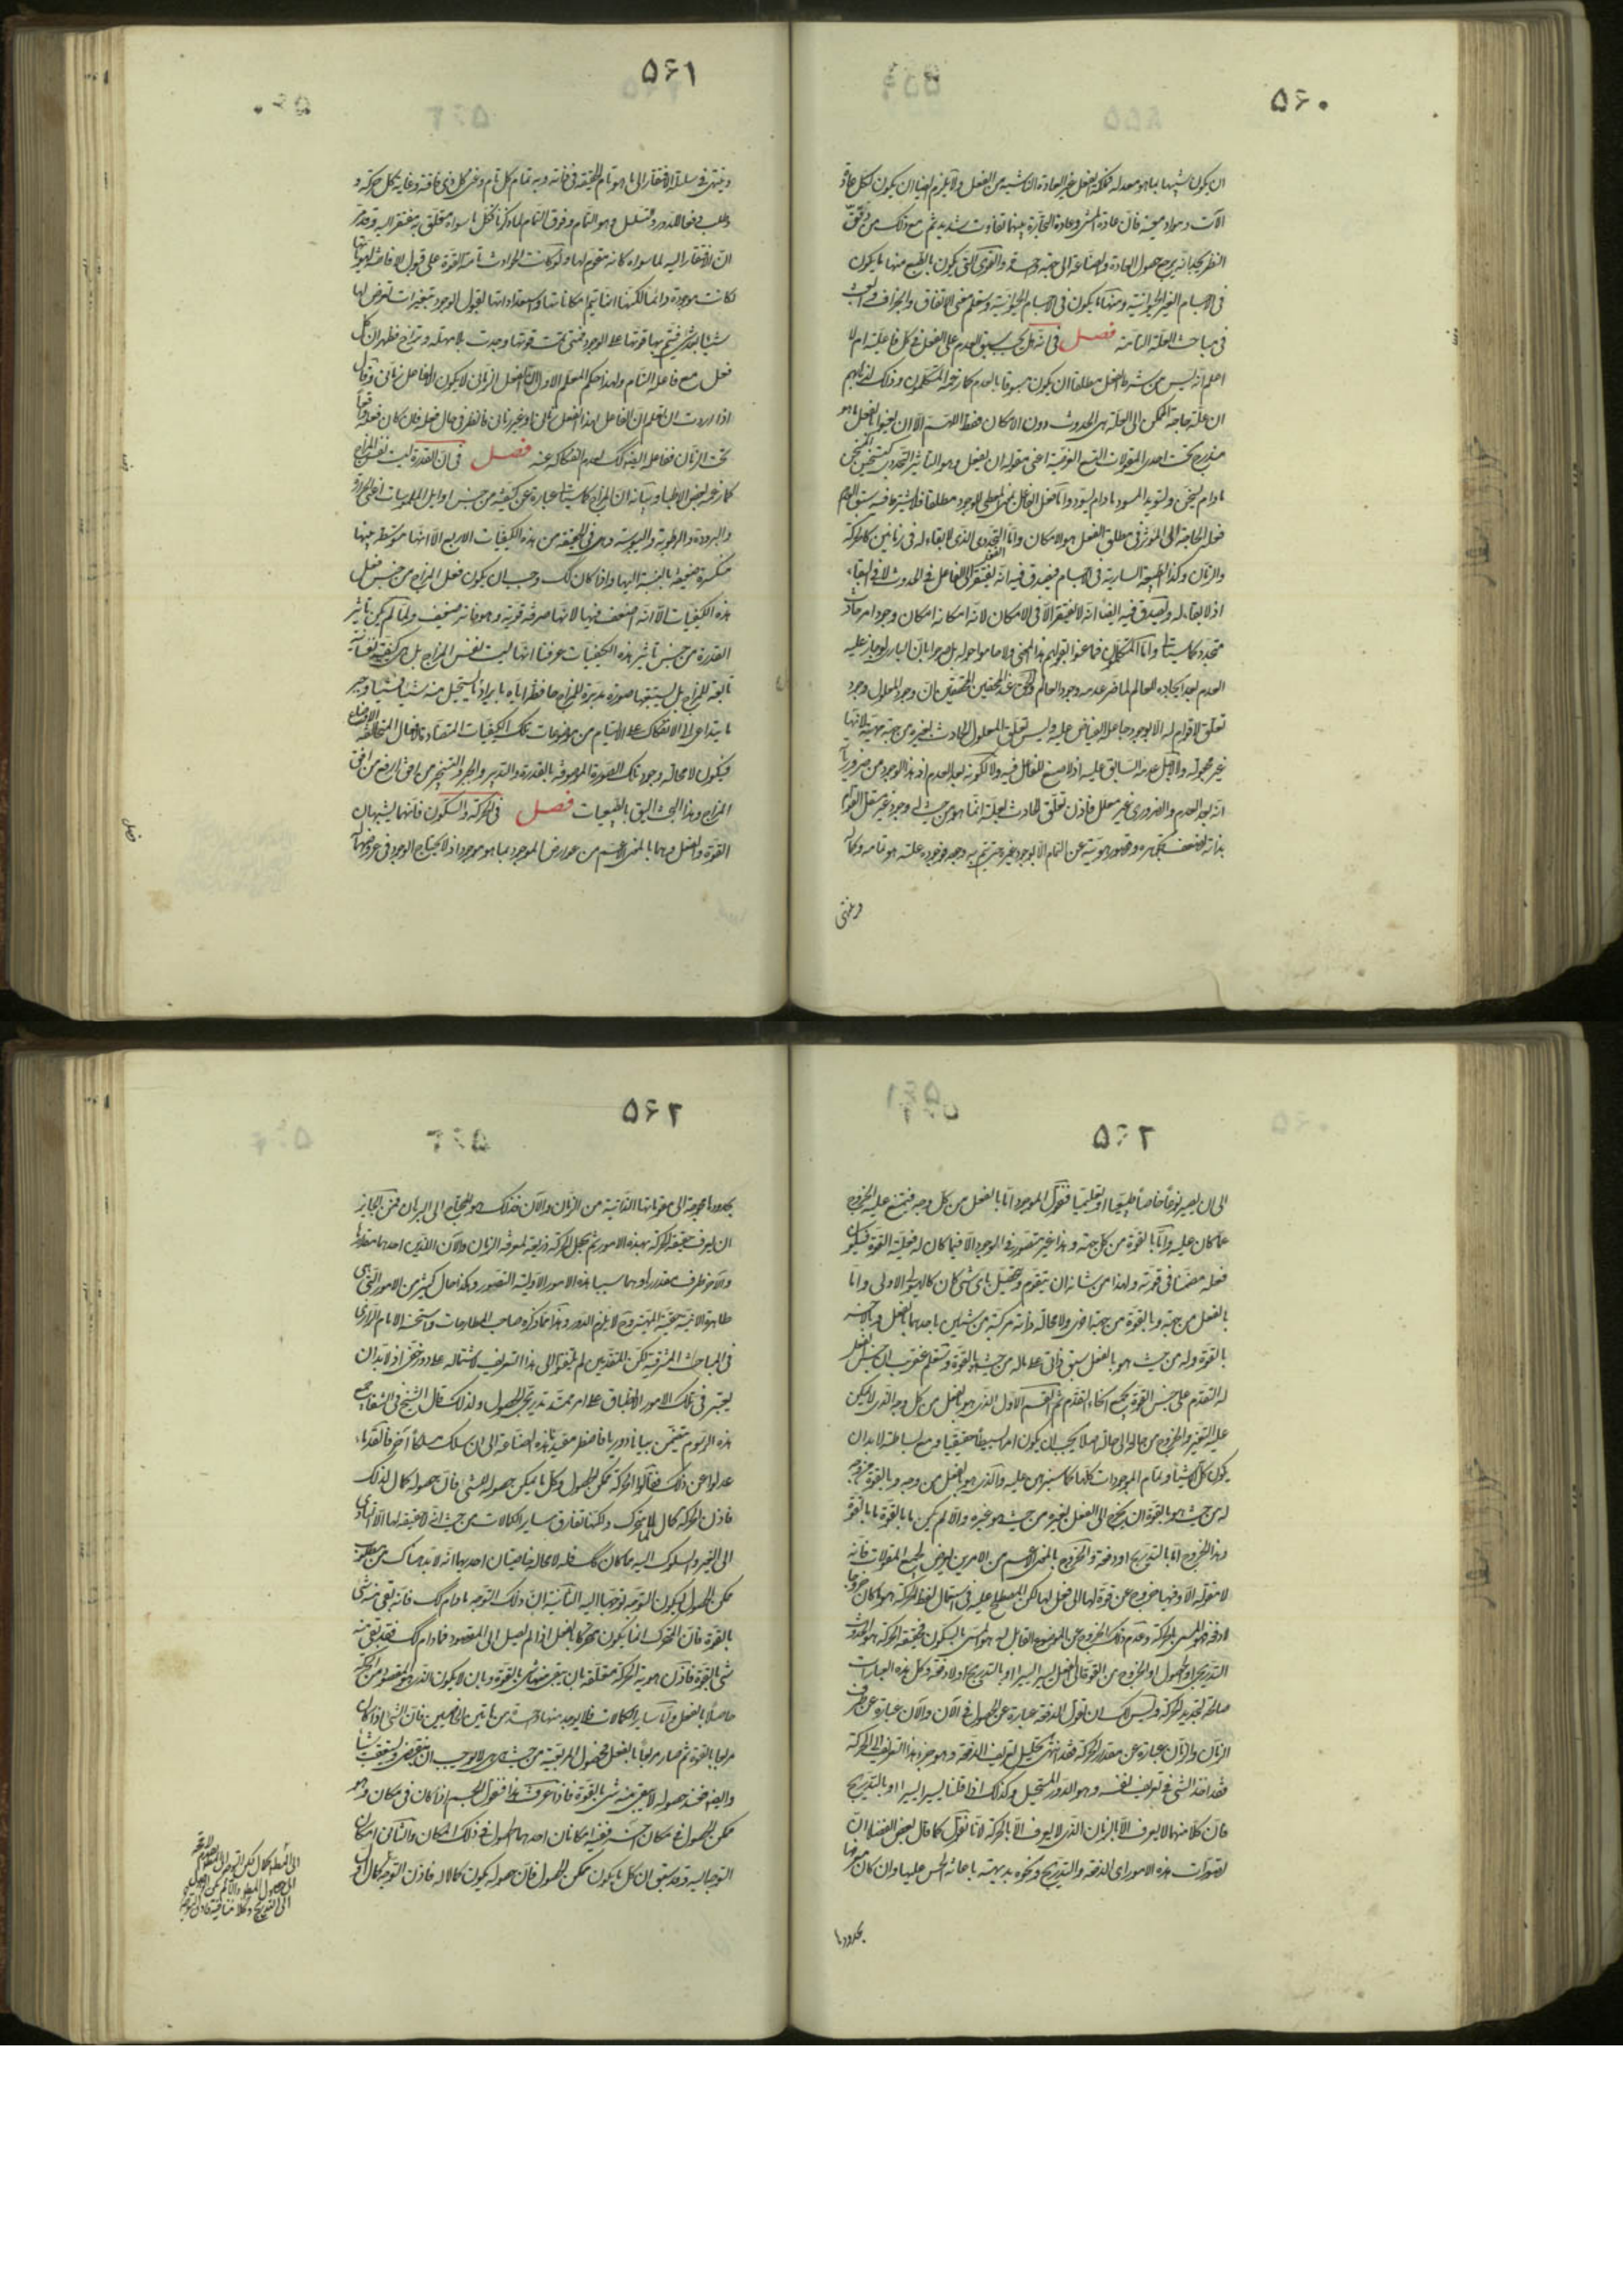 ۵۶۰
ان يكون شبيها بما هو معد له فملكة الفعل غير العادة الناشية من الفعل ولا يلزم ايضا ان يكون لكل عادة
آلات و مواد معينة فان عادة المشي وعادة التجارة بينهما تفاوت شديد ثم مع ذلك من دقق
النظر يجد انه يرجع حصول العادة والصناعة الى جهة واحدة والقوى التي يكون بالطبع منها ما يكون
فى الاجسام الغير الحيوانية ومنها ما يكون فى الاجسام الحيوانية وستعلم معنى الاتفاق والجزاف والعبث
فى مباحث العلة التامة فصل فى انه هل يجب سبق العدم على الفعل فى كل فاعلية ام لا
اعلم انه ليس من شرط الفعل مطلقا ان يكون مسبوقا بالعدم كما زعمه المتكلمون وذلك لظنهم
ان علة حاجة الممكن الى العلة هى الحدوث دون الامكان فقط اللهم الا ان يعنوا بالفعل ما هو
مندرج تحت احدى المقولات التسع العرضية اعنى مقولة ان يفعل وهو التاثير التجددى كتسخين المسخن
ما دام يسخن وتسويد المسود ما دام يسود واما فعل الفاعل بمعنى المعطى للوجود مطلقا فلا يشترط فيه سبق العدم
فعلة الحاجة الى المؤثر فى مطلق الفعل هو الامكان واما التجددى الذى لا بقاء له فى زمانين كالحركة
والزمان وكذا الطبيعة السارية فى الاجسام فيصدق فيه انه يفتقر الى الفاعل فى الحدوث لا فى البقاء
اذ لا بقاء له ويصدق فيه ايضا انه لا يفتقر الا فى الامكان لانه امكانه امكان وجود امر حادث
متجدد كما سياتى واما المتكلمون فما عنوا بقولهم هذا المعنى ولا حاموا حوله بل صرحوا بان البارى لو جاز عليه
العدم لعد ايجاده للعالم لما ضر عدمه وجود العالم والحق عند المحققين ان وجود المعلول وجود
تعلق لا قوام له الا بوجود جاعله الفياض عليه وليس تعلق المعلول الحادث بغيره من جهة مهيته لانها
غير مجعولة ولا لاجل عدمه السابق عليه اذ لا صنع للفاعل فيه ولا لكونه بعد العدم اذ هذا الوجود من ضرورياته
انه بعد العدم والضرورى غير معلل فاذن تعلق الحادث بعلة انما هو من حيث له وجود غير مستقل القوام
بذاته لضعف تجوهره وقصور هويته عن التمام الا بوجود غيره حتى يتم به وجوده فوجود علته هو تمامه وكماله
وينتهى
۵۶۱
وينتهى فى سلسلة الافتقار الى ما هو تام الحقيقة فى ذاته وبه تمام كل تام وغنى كل ذى فاقة وغاية كل حركة و
طلب دفعا للدور والتسلسل وهو التام وفوق التمام لما ذكرنا فكل ما سواه متعلق به مفتقر اليه وقد مر
ان الافتقار اليه لما سواه كانه مقوم لها ولو كانت الحوادث تامة القوة على قبول الافاضة لهوياتها
لكانت موجودة دائما لكنها انما يتم امكاناتها واستعداداتها لقبول الوجود بتغيرات تعرض لها
شيئا بعد شئ فيتم بها قوتها على الوجود فمتى تمت قوتها وجدت بلا مهلة وتراخ فظهر ان كل
فعل مع فاعله التام ولهذا حكم المعلم الاول بان الفعل الزمانى لا يكون الا لفاعل زمانى وقال
اذا اردت ان تعلم ان الفاعل لهذا الفعل زمانى او غير زمانى فانظر فى حال فعله فان كان فعله واقعا
تحت الزمان ففاعله ايضا كك لعدم انفكاكه عنه فصل فى ان القدرة ليست نفس المزاج
كما زعمه بعض الاطباء وبيانه ان المزاج كما سياتى عبارة عن كيفية من جنس اوايل الملموسات اعنى الحرارة
والبرودة والرطوبة واليبوسة وهى فى الحقيقة من هذه الكيفيات الاربع الا انها متوسطة بينها
منكسرة ضعيفة بالنسبة اليها واذا كان كك وجب ان يكون فعل المزاج من جنس فعل
هذه الكيفيات الا انه اضعف منها لانها صرفة قوية وهو فاتر ضعيف ولما لم يكن تاثير
القدرة من جنس تاثير هذه الكيفيات عرفنا انها ليست نفس المزاج بل هى كيفية نفسانية
تابعة للمزاج بل يستتبعها صورة مدبرة للمزاج حافظة اياه بايراد ما يستحيل منه شيئا فشيئا وجبر
ما يتداعى الى الانفكاك على الالتيام من موضوعات تلك الكيفيات المتضادة والافعال المتخالفة الاوضاع
فيكون لا محالة وجود تلك الصورة الموصوفة بالقدرة والتدبير والجبر والتسخير من افق ارفع من افق
المزاج وهذا البحث اليق بالطبيعيات فصل فى الحركة والسكون فانهما يشبهان
القوة والفعل وهما بالمعنى الاعم من عوارض الموجود بما هو موجود اذ لا يحتاج الموجود فى عروضهما
۵۶۲
الى ان يصير نوعا خاصا طبيعيا او تعليميا فنقول الموجود اما بالفعل من كل وجه فيمتنع عليه الخروج
عما كان عليه واما بالقوة من كل جهة وهذا غير متصور فى الموجود الا فيما كان له فعلية القوة فيكون
فعله مضمنا فى قوته ولهذا من شانه ان يتقوم ويتحصل باى شئ كان كالهيولى الاولى واما
بالفعل من جهة وبالقوة من جهة اخرى ولا محالة ذاته مركبة من شيئين باحدهما بالفعل وبالاخر
بالقوة وله من حيث هو بالفعل سبق ذاتى على ماله من حيث هو بالقوة وستعلم عن قريب ان جنس الفعل
له التقدم على جنس القوة بجميع انحاء التقدم ثم القسم الاول الذى هو بالفعل من كل وجه الذى لا يمكن
عليه التغير والخروج من حالة الى حالة اصلا يجب ان يكون امرا بسيطا حقيقيا ومع بساطته لا بد ان
يكون كل الاشياء وتمام الموجودات كلها كما سنبرهن عليه والذى هو بالفعل من وجه وبالقوة من وجه
له من حيث هو بالقوة ان يخرج الى الفعل بغيره من حيث هو غيره والا لم يكن ما بالقوة ما بالقوة
وهذا الخروج اما بالتدريج او دفعة والخروج بالمعنى الاعم من الامرين يعرض لجميع المقولات فانه
لا مقولة الا وفيها خروج عن قوة لها الى فعل لها لكن المصطلح عليه فى استعمال لفظ الحركة هو ما كان خروجا
لا دفعة فهو المسمى بالحركة وعدم ذلك الخروج عن الموضوع القابل له هو المسمى بالسكون فحقيقة الحركة هو الحدوث
التدريجى او الحصول او الخروج من القوة الى الفعل يسيرا يسيرا او بالتدريج او لا دفعة وكل هذه العبارات
صالحة لتحديد الحركة وليس لك ان تقول الدفعة عبارة عن الحصول فى الآن والآن عبارة عن طرف
الزمان والزمان عبارة عن مقدار الحركة فقد انتهى تحليل تعريف الدفعة وهو جزء هذا التعريف الى الحركة
فقد اخذ الشئ فى تعريف نفسه وهو الدور المستحيل وكذلك اذا قلنا يسيرا يسيرا او بالتدريج
فان كلا منهما لا يعرف الا بالزمان الذى لا يعرف الا بالحركة لانا نقول كما قال بعض الفضلاء ان
تصورات هذه الامور اى الدفعة والتدريج ونحوه بديهية باعانة الحس عليها وان كان معرفتها
بحدودها
۵۶۲
بحدودها محوجة الى مقوماتها الذاتية من الزمان والآن فذلك هو المحتاج الى البرهان فمن الجايز
ان يعرف حقيقة الحركة بهذه الامور ثم يجعل الحركة ذريعة لمعرفة الزمان والآن اللذين احدهما مقدارها
والآخر طرف مقدارها وهما سببا هذه الامور الاولية التصور وهكذا حال كثير من الامور التى هى
ظاهرة الانية خفية المهية وح لا يلزم الدور وهذا مما ذكره صاحب المطارحات واستحسنه الامام الرازى
فى المباحث المشرقية لكن المتقدمين لم يلتفتوا الى هذا التعريف لاشتماله على دور خفى اذ لا بد ان
يعتبر فى تلك الامور الانطباق على امر ممتد تدريجى الحصول ولذلك قال الشيخ فى الشفاء جميع
هذه الرسوم يتضمن بيانا دوريا فاضطر مفيدنا هذه الصناعة الى ان سلك مسلكا آخر فالقدماء
عدلوا عن ذلك فقالوا الحركة ممكن الحصول وكل ما يمكن حصوله للشئ فان حصوله كمال لذلك
فاذن الحركة كمال لما يتحرك ولكنها تفارق ساير الكمالات من حيث انه لا حقيقة لها الا التادى
الى الغير والسلوك اليه فما كان كك فله لا محالة خاصيتان احديهما انه لا بد هناك من مطلوب
ممكن الحصول ليكون التوجه توجها اليه الثانية ان ذلك التوجه ما دام كك فانه بقى منه شئ
بالقوة فان المتحرك انما يكون متحركا بالفعل اذا لم يصل الى المقصود فما دام كك فقد بقى منه
شئ بالقوة فاذن هوية الحركة متعلقة بان يبقى منها شئ بالقوة وبان لا يكون الذى هو المقصود من الحركة
حاصلا بالفعل واما ساير الكمالات فلا يوجد فيها واحدة من هاتين الخاصيتين فان الشئ اذا كان
مربعا بالقوة ثم صار مربعا بالفعل فحصول المربعية من حيث هى هى لا يوجب ان يستعقب شيئا
وايضا فعند حصوله لا يبقى منه شئ بالقوة فاذا عرفت هذا فنقول الجسم اذا كان فى مكان وهو
ممكن الحصول فى مكان آخر ففيه امكانان احدهما امكان الحصول فى ذلك المكان والثانى امكان
التوجه اليه وقد سبق ان كل ما يكون ممكن الحصول فان حصوله يكون كمالا له فاذن التوجه كمال اول